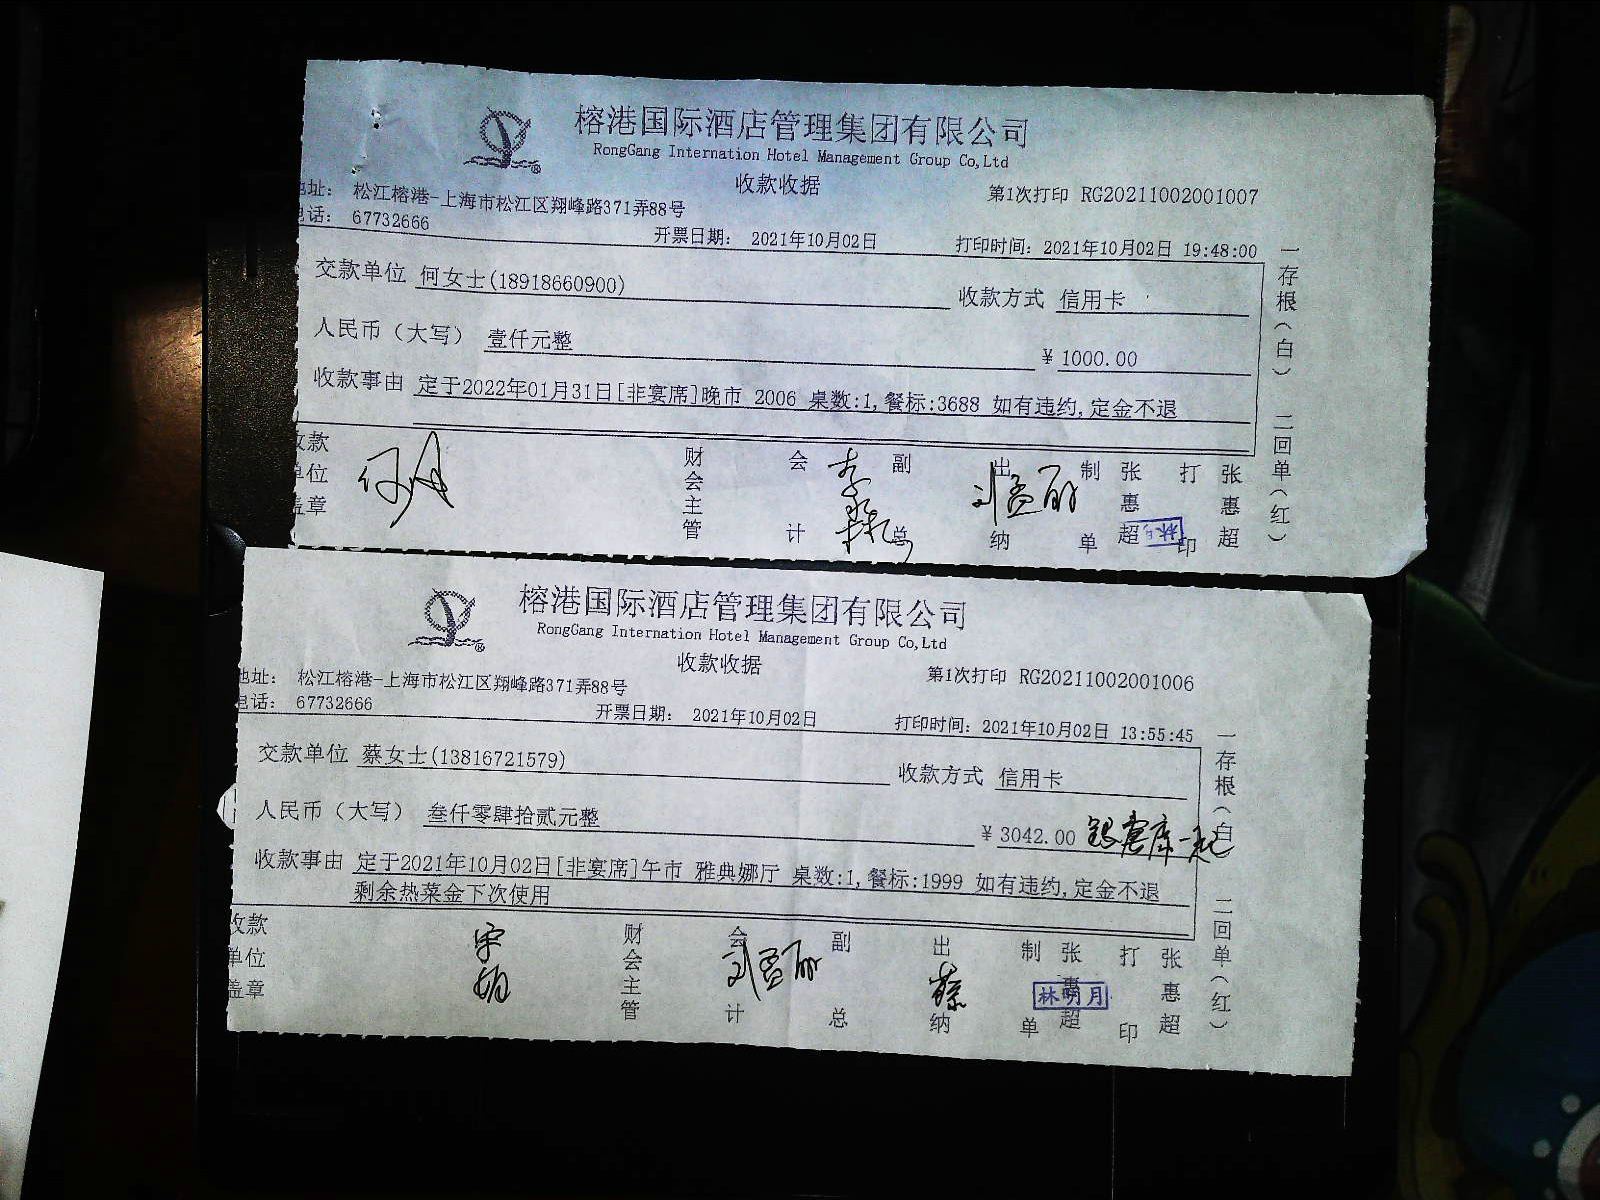 榕港国际酒店管理集团有限公司
RongGang Internation Hotel Management Group Co,Ltd
收款收据
第1次打印 RG20211002001007
地址： 松江榕港-上海市松江区翔峰路371弄88号
电话： 67732666
开票日期： 2021年10月02日
打印时间： 2021年10月02日 19:48:00
交款单位 何女士(18918660900)
收款方式 信用卡
人民币（大写） 壹仟元整
￥ 1000.00
收款事由 定于2022年01月31日[非宴席]晚市 2006 桌数:1,餐标:3688 如有违约,定金不退
收款单位盖章
财会主管
会计
副总
出纳
制单
张惠超
打印
张惠超
一存根（白） 二回单（红）
榕港国际酒店管理集团有限公司
RongGang Internation Hotel Management Group Co,Ltd
收款收据
第1次打印 RG20211002001006
地址： 松江榕港-上海市松江区翔峰路371弄88号
电话： 67732666
开票日期： 2021年10月02日
打印时间： 2021年10月02日 13:55:45
交款单位 蔡女士(13816721579)
收款方式 信用卡
人民币（大写） 叁仟零肆拾贰元整
￥ 3042.00
收款事由 定于2021年10月02日[非宴席]午市 雅典娜厅 桌数:1,餐标:1999 如有违约,定金不退
剩余热菜金下次使用
收款单位盖章
财会主管
会计
刘孟丽
副总
出纳
制单
张惠超
林明月
打印
张惠超
一存根（白） 二回单（红）